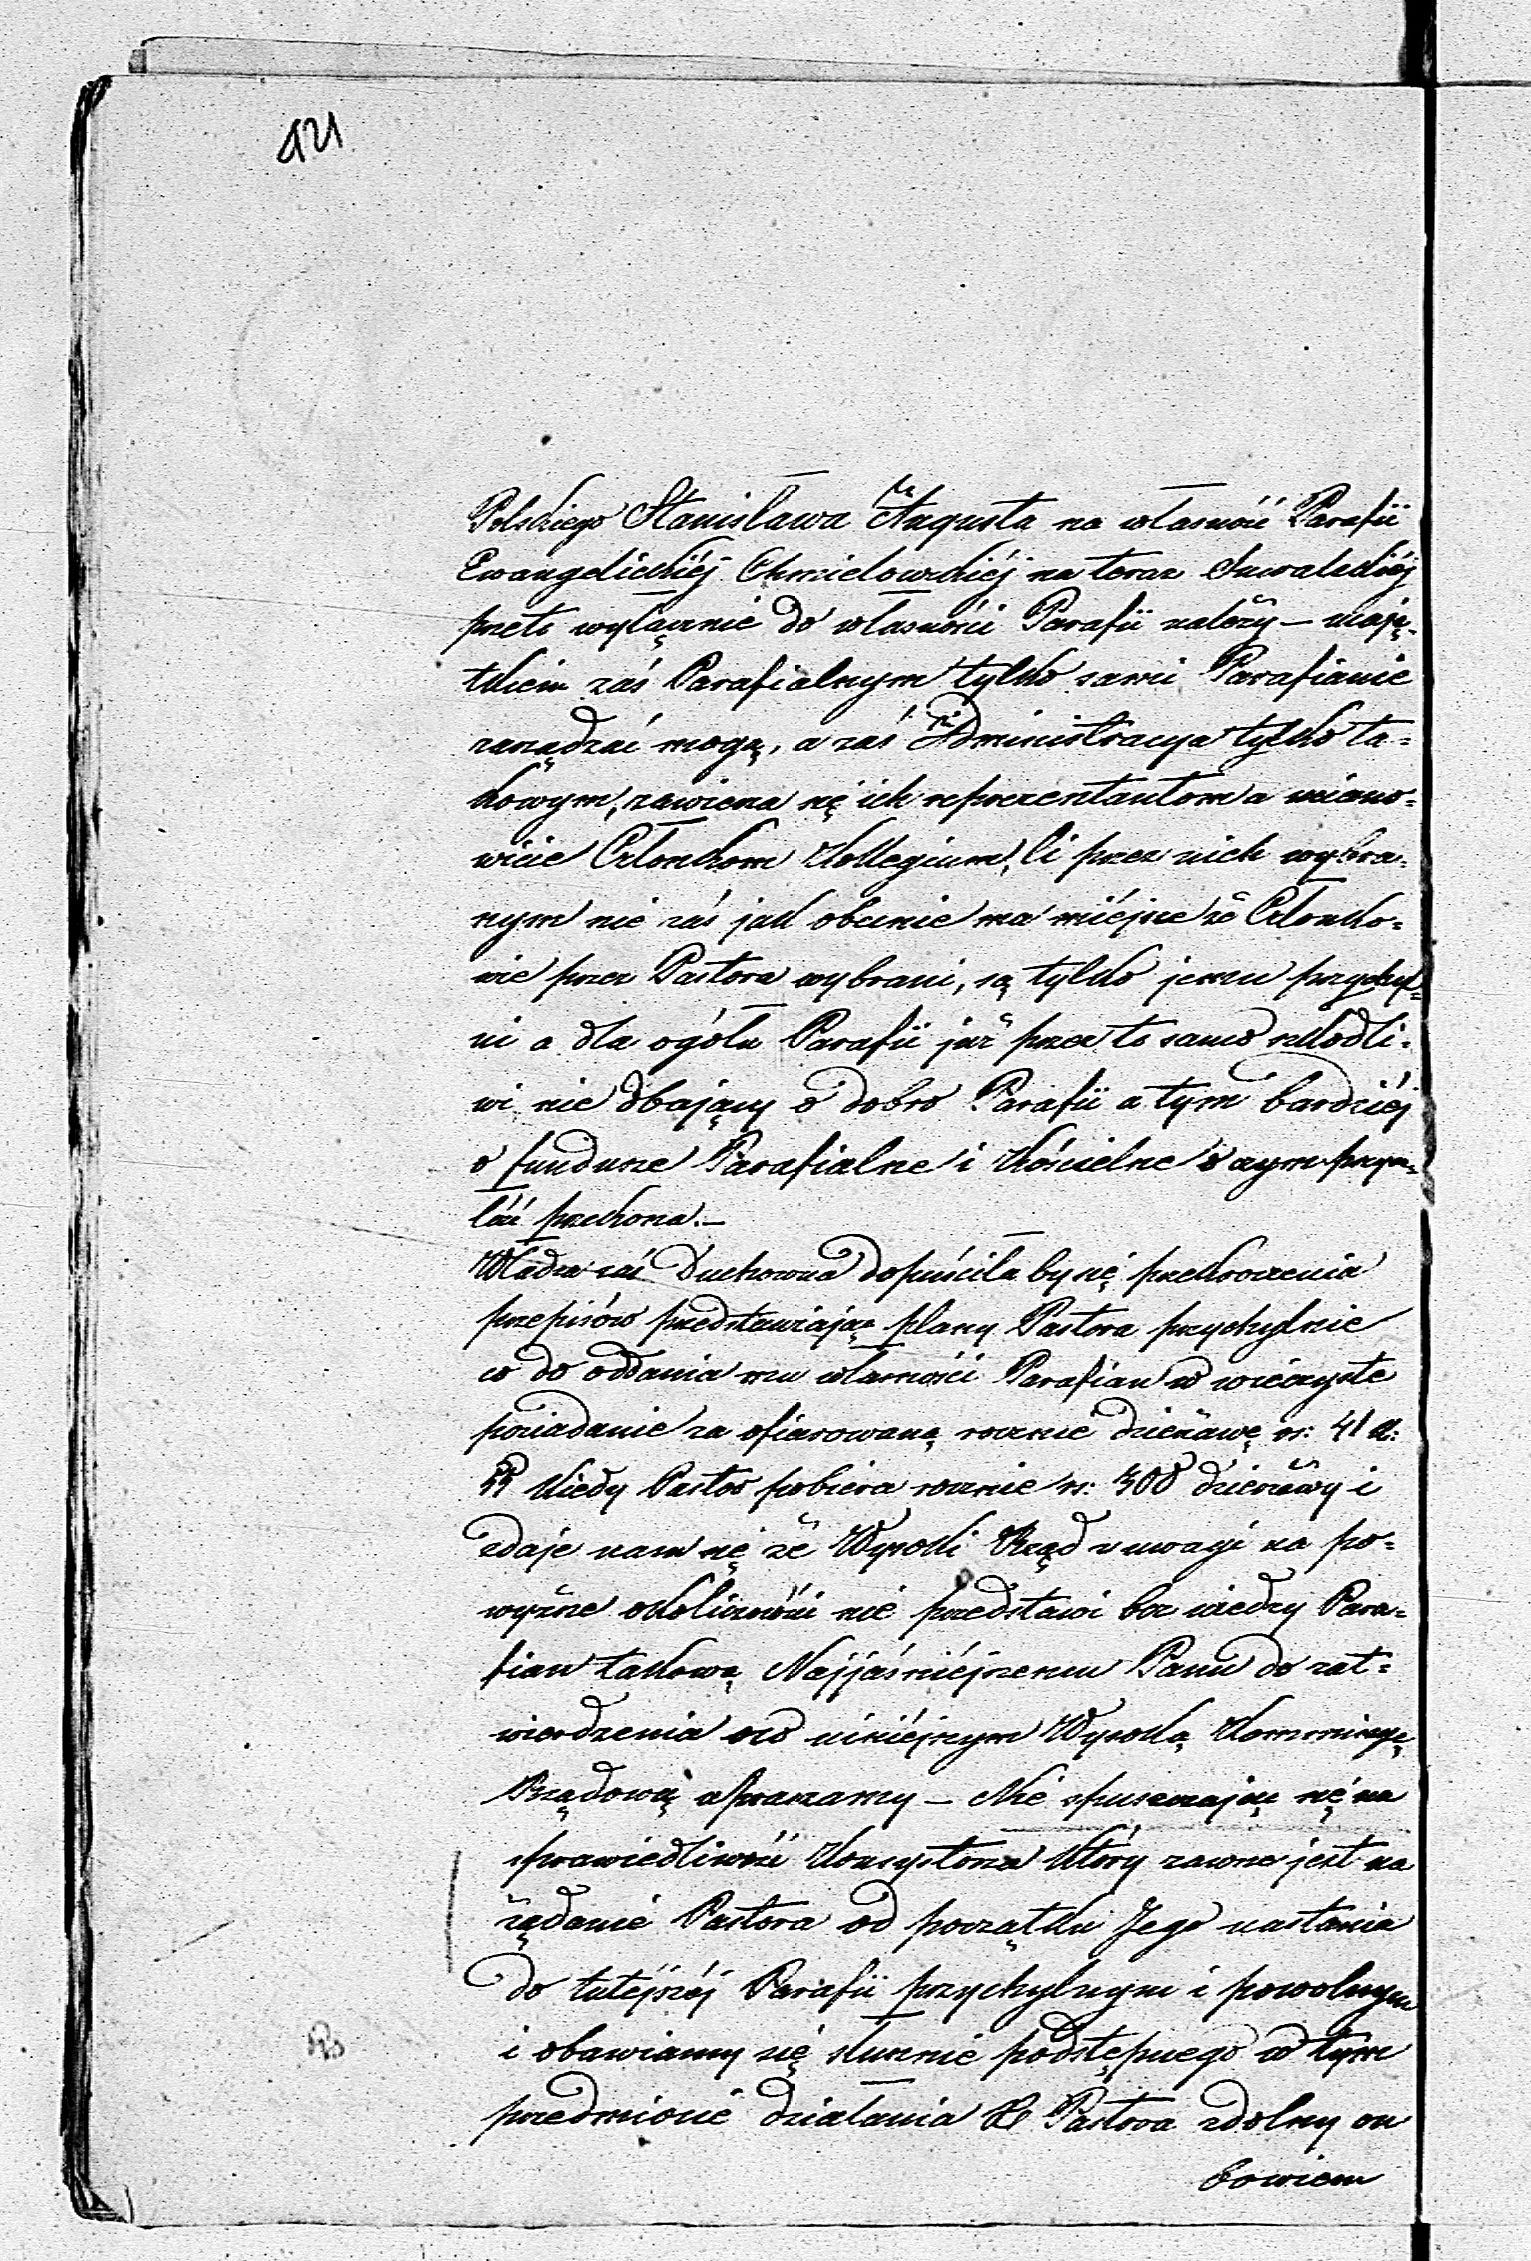 421
Polskiego Stanisława Augusta na własność Parafii
Ewangelickiéj Chmielowskiéj na teraz Suwalskiéj
przeto wyłącznie do własności Parafii należy — mają-
tkiem zaś Parafialnym tylko sami Parafianie
zarządzać mogą, a zaś Administracya tylko ta-
kowym, zawiera się ich reprezentantom a miano-
wicie Członkom Kollegium, li przez nich wybra-
nym nie zaś jak obecnie ma miéjsce że Członko-
wie przez Pastora wybrani, są tylko jemu przychyl-
ni a dla ogółu Parafii już przez to samo szkodli-
wi nie dbający o dobro Parafii a tym bardziéj
o fundusze Parafialne i Kościelne o czym
przekona. —
Władza zaś Duchowna dopuściła by się przekroczenia
przepisów przedstawiając plany Pastora przychylnie
co do oddania mu własności Parafian w wieczyste
posiadanie za ofiarowaną rocznie dzierżawę rs: 41 k:
kiedy Pastor pobiera rocznie rs: 300 dzierżawy i
zdaje nam się że Wysoki Rząd z uwagi na po-
wyższe okoliczności nie przedstawi bez wiedzy Para-
fian takową Najjaśniéjszemu Panu do zat-
wierdzenia o co niniéjszym Wysoką Kommissyę
Rządową upraszamy — Nie spuszczając się na
sprawiedliwość Konsystorza który zawsze jest na
żądanie Pastora od początku Jego nastania
do tutéjszéj Parafii przychylnym i powolnym
i obawiamy się słusznie podstępnego w tym
przedmiocie działania X Pastora zdolny on
bowiem